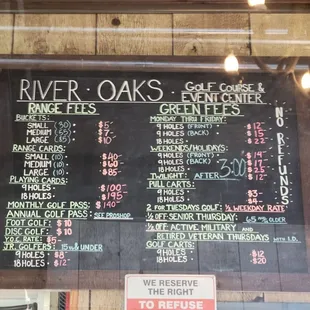 RIVER · OAKS
GOLF COURSE &
EVENT CENTER
RANGE FEES
BUCKETS:
SMALL (30) $5
MEDIUM (65) $7
LARGE (85) $10
RANGE CARDS:
SMALL (10) $40
MEDIUM (10) $60
LARGE (10) $85
PLAYING CARDS:
9 HOLES $100
18 HOLES $195
MONTHLY GOLF PASS: $140
ANNUAL GOLF PASS: SEE PROSHOP
FOOT GOLF: $10
DISC GOLF: $10
Y.O.C. RATE: $5
JR. GOLFERS: 15% & UNDER
9 HOLES $8
18 HOLES $12
GREEN FEES
MONDAY THRU FRIDAY:
9 HOLES (FRONT) $12
9 HOLES (BACK) $15
18 HOLES $22
WEEKENDS/HOLIDAYS:
9 HOLES (FRONT) $14
9 HOLES (BACK) $17
18 HOLES
TWILIGHT: AFTER 3:00 $12
PULL CARTS:
9 HOLES $3
18 HOLES $4
2 FOR TUESDAYS GOLF: ½ WEEKDAY RATE
½ OFF SENIOR THURSDAY: 65 AND OLDER
½ OFF ACTIVE MILITARY AND
RETIRED VETERAN THURSDAYS WITH I.D.
GOLF CARTS:
9 HOLES $12
18 HOLES $20
NO REFUNDS
WE RESERVE
THE RIGHT
TO REFUSE